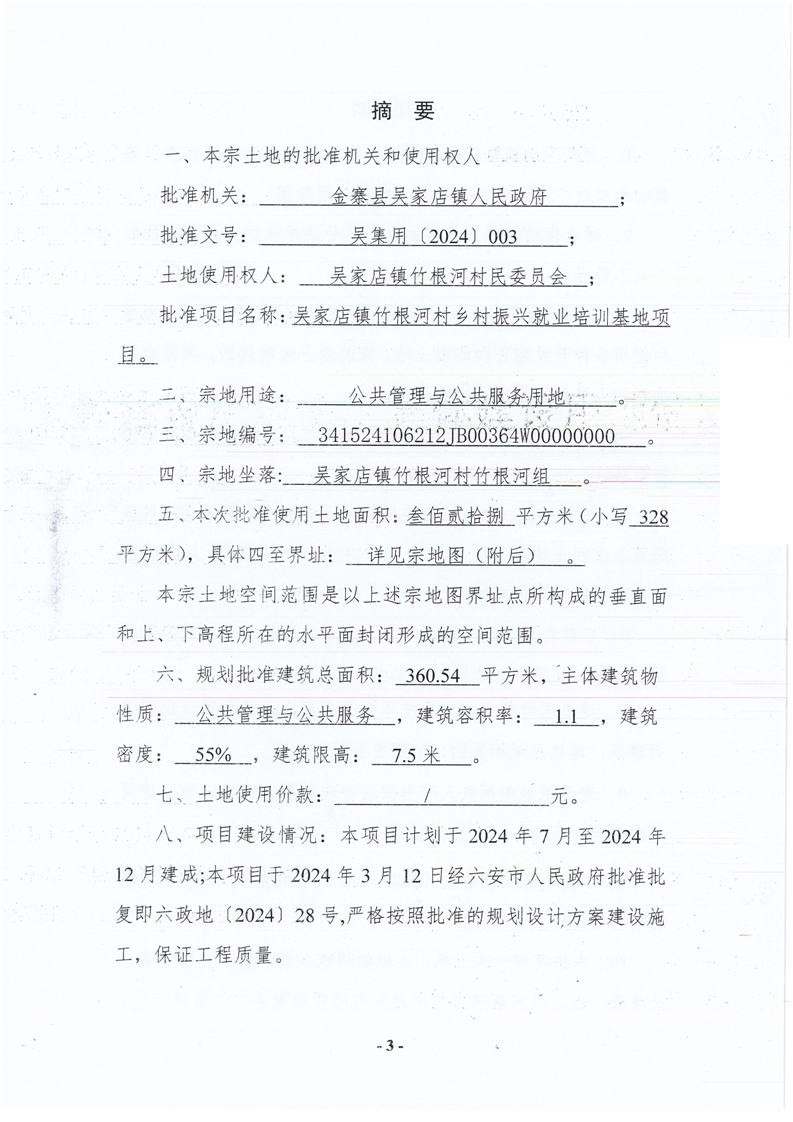 摘 要
一、本宗土地的批准机关和使用权人
批准机关： 金寨县吴家店镇人民政府 ；
批准文号： 吴集用〔2024〕003 ；
土地使用权人： 吴家店镇竹根河村民委员会 ；
批准项目名称：吴家店镇竹根河村乡村振兴就业培训基地项
目。
二、宗地用途： 公共管理与公共服务用地 。
三、宗地编号： 341524106212JB00364W00000000 。
四、宗地坐落： 吴家店镇竹根河村竹根河组 。
五、本次批准使用土地面积：叁佰贰拾捌 平方米（小写 328
平方米），具体四至界址： 详见宗地图（附后） 。
本宗土地空间范围是以上述宗地图界址点所构成的垂直面
和上、下高程所在的水平面封闭形成的空间范围。
六、规划批准建筑总面积： 360.54 平方米，主体建筑物
性质： 公共管理与公共服务 ，建筑容积率： 1.1 ，建筑
密度： 55% ，建筑限高： 7.5 米 。
七、土地使用价款： / 元。
八、项目建设情况：本项目计划于 2024 年 7 月至 2024 年
12 月建成;本项目于 2024 年 3 月 12 日经六安市人民政府批准批
复即六政地〔2024〕28 号,严格按照批准的规划设计方案建设施
工，保证工程质量。
- 3 -